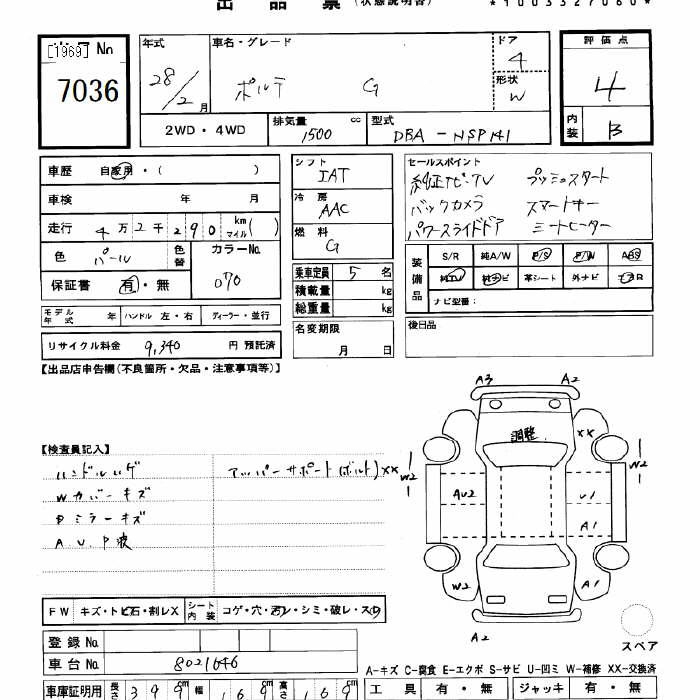 出品票 (状態説明書) *1003327060*
[1969] No
7036
年式
28/2月
車名・グレード
ポルテ G
ドア
4
形状
W
評価点
4
内装
B
2WD・4WD
排気量 1500 cc
型式 DBA-NSP141
車歴 自家用・( )
車検 年 月
走行 4万2千290 km マイル( )
色 パール 色替
カラーNo.
070
保証書 有・無
モデル年式 年 ハンドル 左・右 ディーラー・並行
リサイクル料金 9,340 円 預託済
シフト
IAT
冷房
AAC
燃料
G
乗車定員 5 名
積載量 kg
総重量 kg
名変期限
月 日
セールスポイント
純正ナビ・TV プッシュスタート
バックカメラ スマートキー
パワースライドドア シートヒーター
装備品
S/R 純A/W P/S P/W ABS
純TV 純ナビ 革シート 外ナビ エアB
ナビ型番:
後日品
【出品店申告欄(不良箇所・欠品・注意事項等)】
【検査員記入】
アッパーサポート(ボルト)XX
Wカバーキズ
Dミラーキズ
A.U.P波
A3 A2
調整
XX
W2 W2
AU2 U1
A1
W2 A1
A2
スペア
FW キズ・トビ石・割レX シート内装 コゲ・穴・スレ・シミ・破レ・スレ
登録No.
車台No. 8021646
A-キズ C-腐食 E-エクボ S-サビ U-凹ミ W-補修 XX-交換済
車庫証明用 長さ 399cm 幅 169cm 高さ 169cm
工具 有・無 ジャッキ 有・無